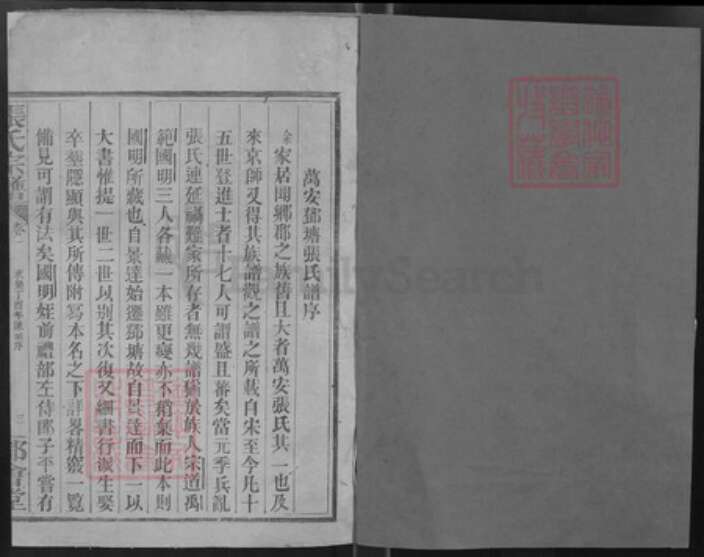 萬安鄧塘張氏譜序
余家居聞鄉郡之族舊且大者萬安張氏其一也及
來京師又得其族譜觀之譜之所載自宋至今凡十
五世登進士者十七人可謂盛且蕃矣當元季兵亂
張氏連延禍難家所存者無幾譜猶於族人宋道禹
範國明三人各藏一本雖更變亦不稍棄而此本則
國明所藏也自景達始遷鄧塘故自景達而下一以
大書惟提一世二世以別其次復又細書行派生娶
卒葬隱顯與其所傳附寫本名之下詳畧精竅一覧
備見可謂有法矣國明姪前禮部左侍郎子平嘗有
張氏宗譜 卷一 永樂丁酉年陳 序 三
FamilySearch